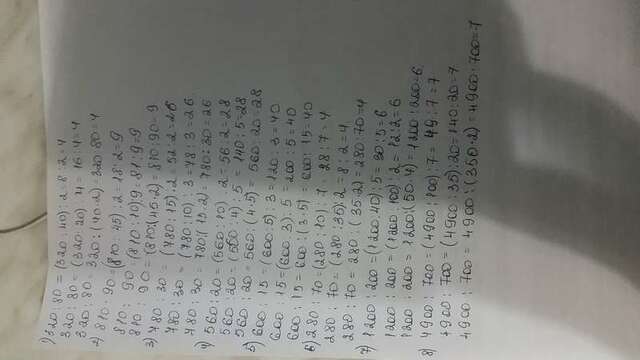 1) 320:80=(320:40):2=8:2=4
320:80=(320:20):4=16:4=4
320:80=320:(40·2)=320:80=4
2) 810:90=(810:45):2=18:2=9
810:90=(810:10):9=81:9=9
810:90=(810:(45·2)=810:90=9
3) 780:30=(780:15):2=52:2=26
780:30=(780:10):3=78:3=26
780:30=780:(15·2)=780:30=26
4) 560:20=(560:10):2=56:2=28
560:20=(560:4):5=140:5=28
560:20=560:(4·5)=560:20=28
5) 600:15=(600:5):3=120:3=40
600:15=(600:3):5=200:5=40
600:15=600:(3·5)=600:15=40
6) 280:70=(280:10):7=28:7=4
280:70=(280:35):2=8:2=4
280:70=280:(35·2)=280:70=4
7) 1200:200=(1200:40):5=30:5=6
1200:200=(1200:100):2=12:2=6
1200:200=1200:(50·4)=1200:200=6
8) 4900:700=(4900:100):7=49:7=7
4900:700=(4900:35):20=140:20=7
4900:700=4900:(350·2)=4900:700=7